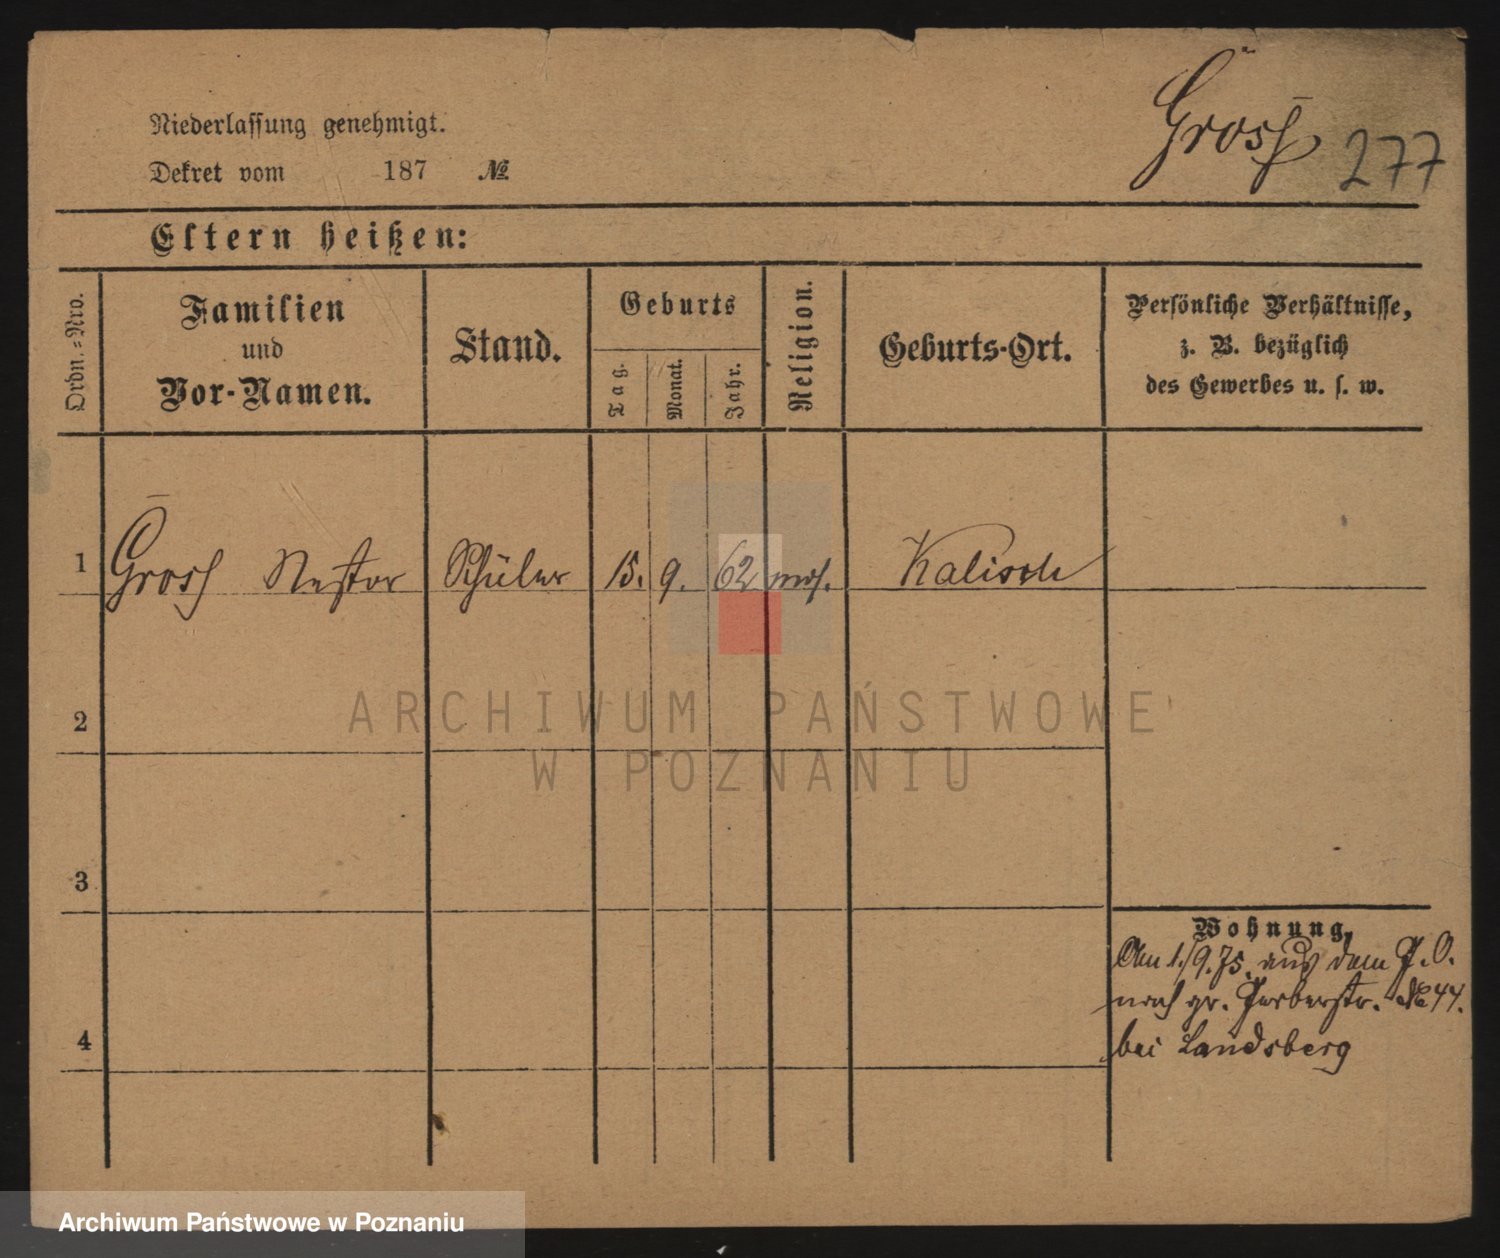 Grosz 277
Niederlassung genehmigt.
Dekret vom 187 №
Eltern heißen:
Ordn.=Nro.
Familien
und
Vor-Namen.
Stand.
Geburts
Tag.
Monat.
Jahr.
Religion.
Geburts-Ort.
Persönliche Verhältnisse,
z. B. bezüglich
des Gewerbes u. s. w.
1 Grosz Nestor Schüler 15. 9. 62 mos. Kalisch
2
3
4
Wohnung,
Am 1./9.75. aus dem P.O.
nach gr. Gerberstr. № 44.
bei Landsberg
ARCHIWUM PAŃSTWOWE
W POZNANIU
Archiwum Państwowe w Poznaniu